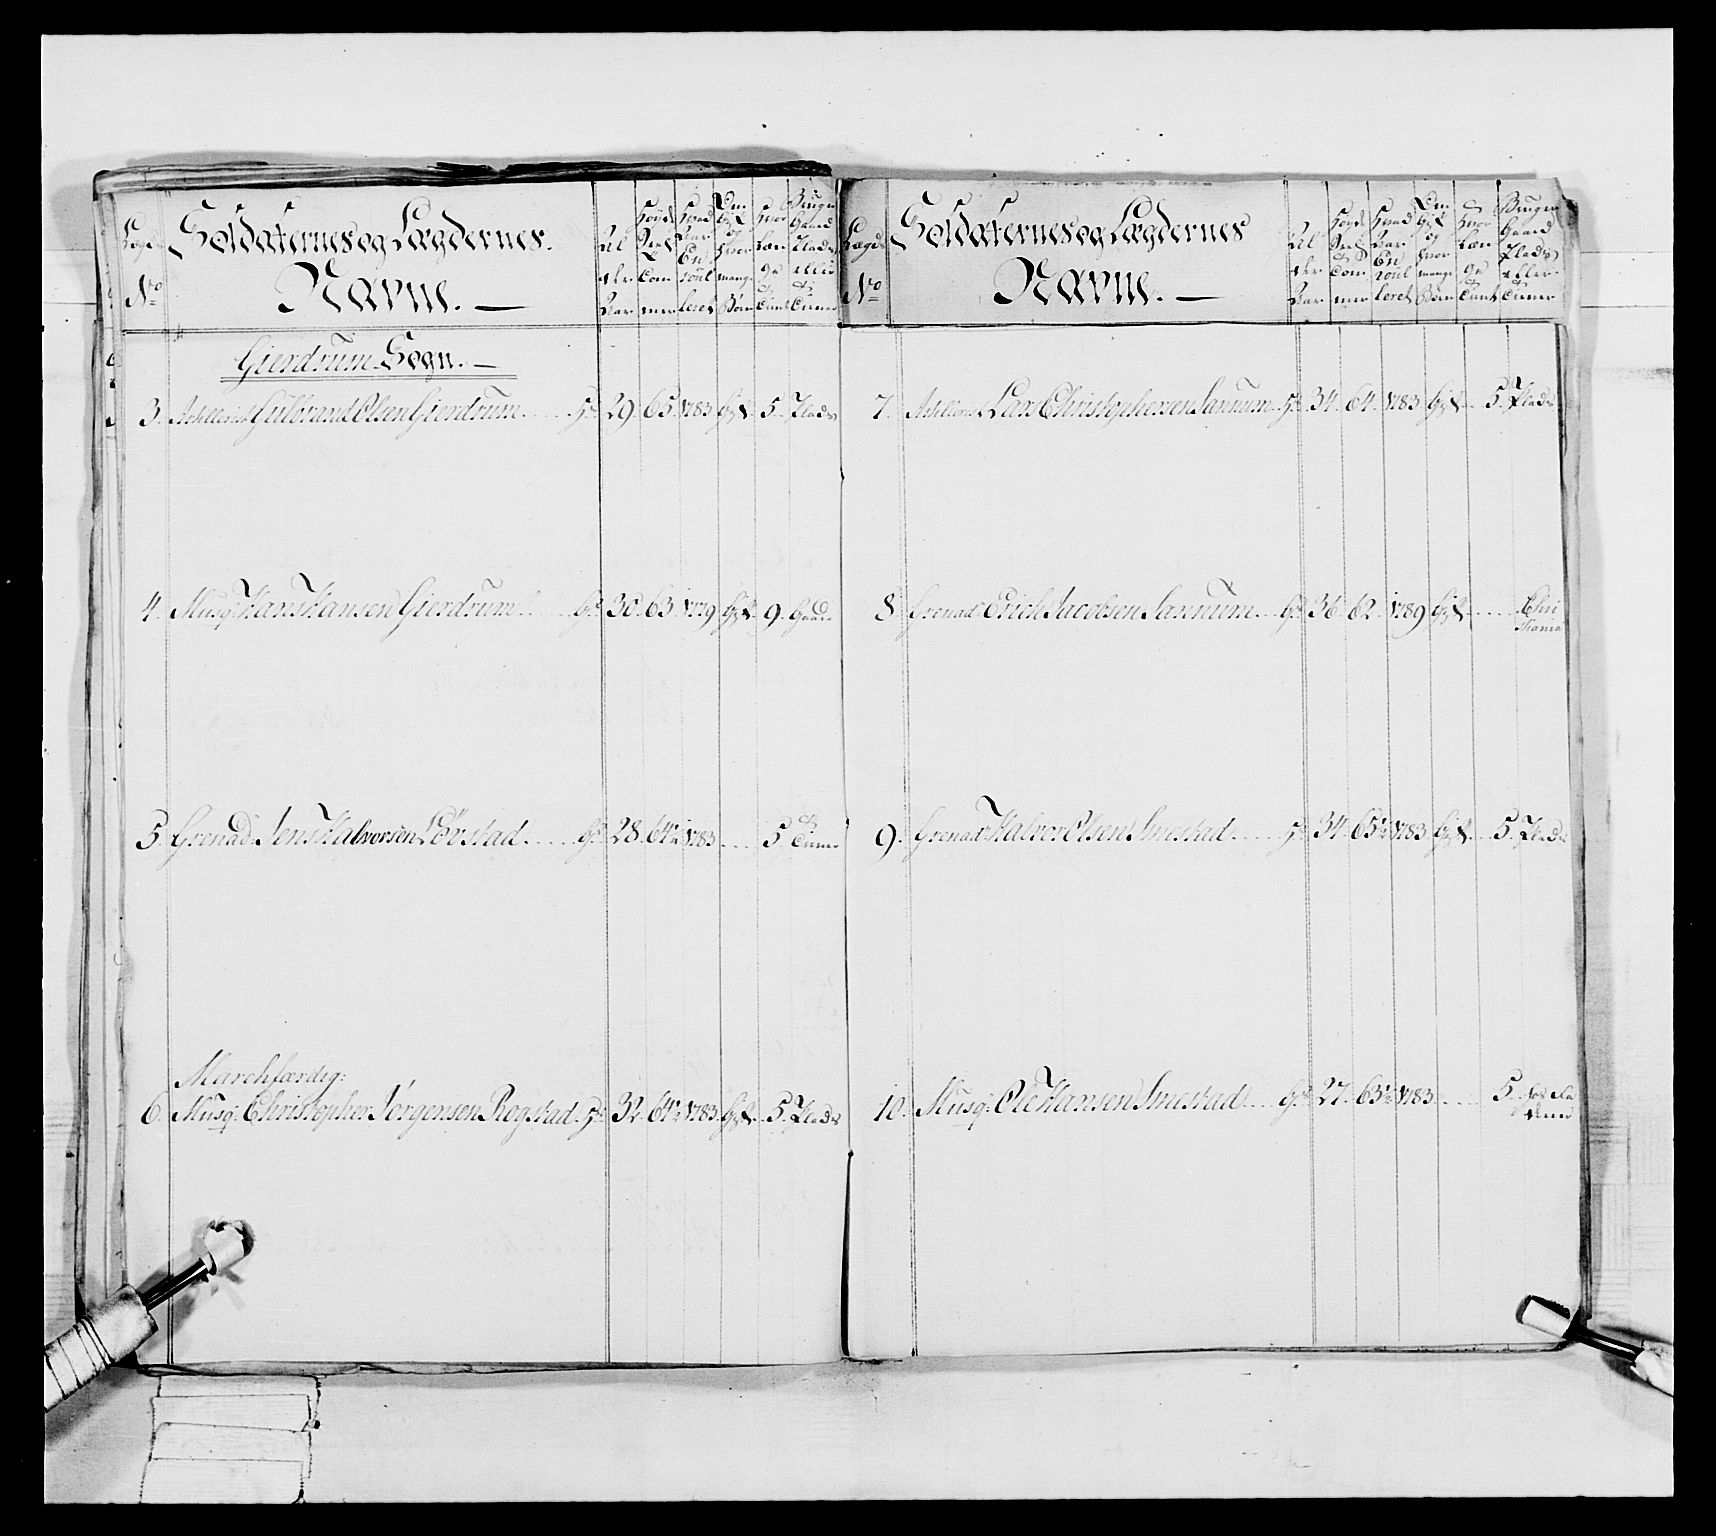 Lægds No
Soldaternes og Lægdernes
Navne.
Al der Aar
Høyde Sool Tom mer
Hvad Aar En roul leret
Om Gift og Hvor mange Børn
Hvor Læn ge tient
Bruger Gaard Plads eller tiener
Gierdrum Sogn.
3. Artillerist Gulbrand Olsen Gierdrum 29. 65. 1783 Gift. 5. Plads
4. Musq: Hans Hansen Gierdrum 30. 63. 1779 Gift. 9. Gaard
5. Grenad: Jens Halvorsen Løvstad 28. 64½ 1783 5 tiener
Marchfærdig:
6. Musq: Christopher Jørgensen Rogstad 32. 64½ 1783. Gift. 5. Plads
Lægds No
Soldaternes og Lægdernes
Navne.
Al der Aar
Høyde Tom mer
Hvad Aar En roul leret
Om Gift og Hvor mange Børn
Hvor Læn ge tient
Bruger Gaard Plads eller tiener
7. Artillerist Lars Christophersen Sannum 34. 64. 1783 Gift. 5. Plads
8. Grenad: Erich Jacobsen Sannum 36. 62. 1789 Gift. Chri
stiania
9. Grenad: Halvor Olsen Smestad 34. 65½ 1783 Gift. 5. Plads
10. Musq: Ole Hansen Smestad 27. 63½ 1783 5.